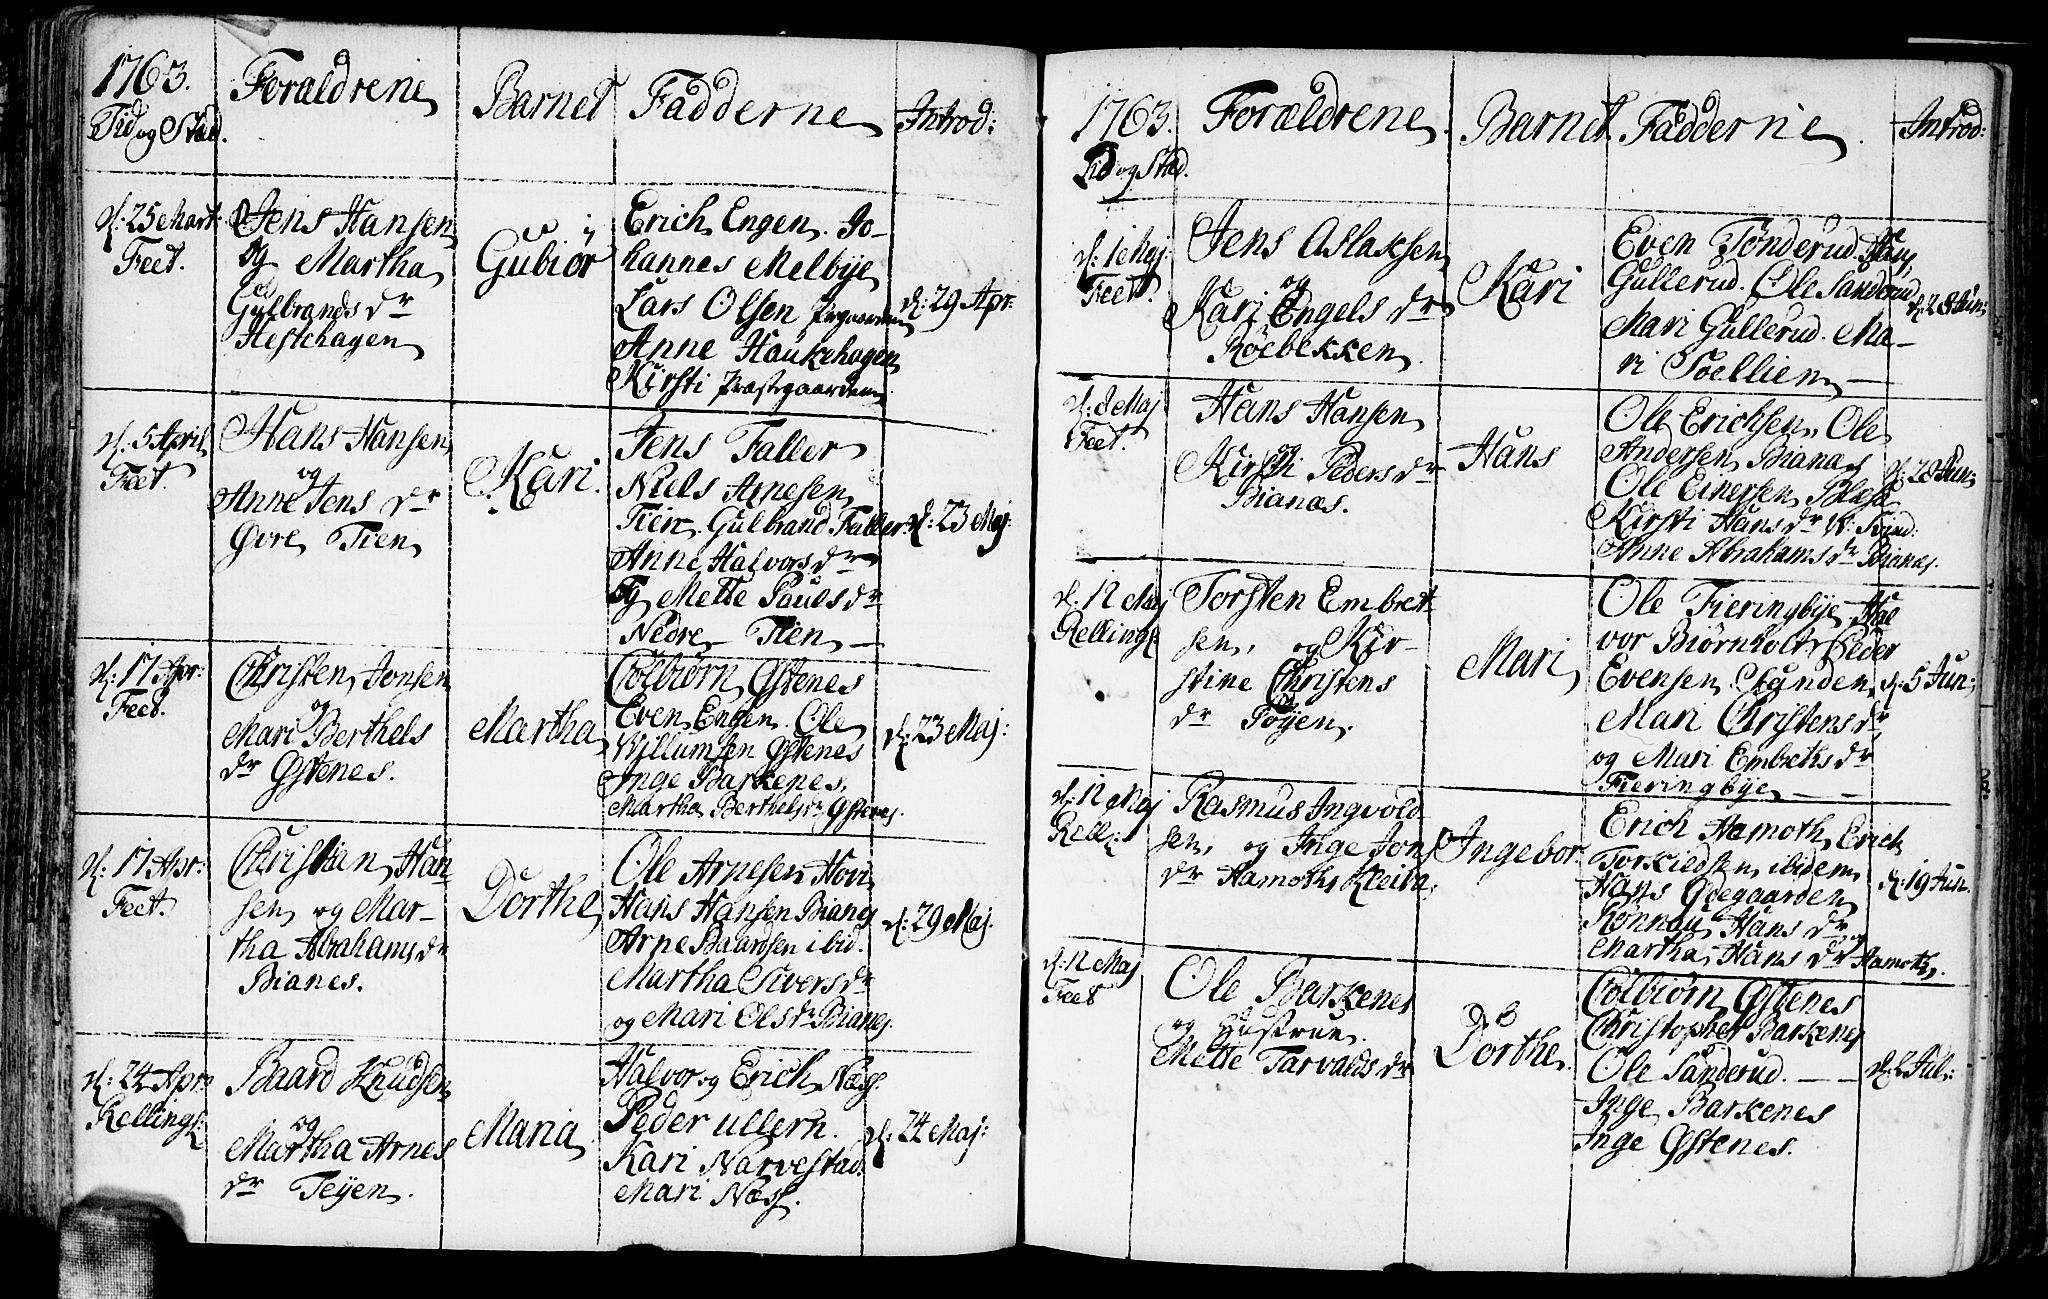 1763.
Tid og Stæd.
Foraldrene
Barnet
Fadderne
Introd:
d: 25 Mart:
Feet.
Jens Hansen
og Martha
Gulbrands dr
Hestehagen
Gubiör
Erich Engen. Jo-
hannes Melbye
Lars Olsen Prgaarden
Anne Haukehagen
Kirsti Præstgaarden
d: 29 Apr:
d. 5 April
Feet.
Hans Hansen
og
Anne Jens dr
Øvre Tien
Kari.
Jens Faller
Niels Arnesen
Tien. Gulbrand Faller
Anne Halvors dr
og Mette Pauls dr
Nedre Tien
d: 23 Maj:
d. 17 Apr:
Feet.
Christen Jonsen
og
Mari Berthels
dr Østenes.
Martha
Colbiørn Østenes
Even Engen. Ole
Willumsen Østenes
Inge Barkenes,
Martha Berthels dr Østenes.
d: 23 Maj:
d: 17 Apr:
Feet.
Christian Han-
sen og Mar-
tha Abrahams dr
Bianes.
Dorthe
Ole Arnesen Hovi
Hans Hansen Bianes
Arne Baardsen ibid.
Martha Sivers dr
og Mari Ols dr Bianes.
d: 29 Maj.
d: 24 Apr:
Rellings:
Baard Knudsen
og
Martha Arnes
dr Teyen.
Maria
Halvor og Erich Næss
Peder Ullern.
Kari Narvestad.
Mari Næss.
d: 24 Maj:
1763.
Tid og Stæd.
Forældrene.
Barnet
Fadderne.
Introd:
d: 1 Maj.
Feet.
Jens Aslaksen
og
Kari Engels dr
Röebekken
Kari
Even Tønderud.
Gullerud. Ole Sanderud
Mari Gullerud. Ma-
ri Soellien
d. 28 Jun:
d: 8 Maj
Feet.
Hans Hansen
og
Kirsti Peders dr
Bianæs.
Hans
Ole Erichsen, Ole
Andersen Bianæs
Ole Einersen Blæse
Kirsti Hans dr
Anne Abrahams dr Bianæs.
d: 28 Jun:
d: 12 Maj
Rellings
Torsten Embret
sen, og Kir-
stine Christens
dr Töyen.
Mari
Ole Fieringbye Hal
vor Biörnholt Peder
Evensen Stynden
Mari Christens dr
og Mari Embrets dr
Fieringbye
d: 5 Jun:
d: 12 Maj
Rell:
Rasmus Ingvold
sen, og Inge Jons
dr Hamoths Kleiva.
Ingebor.
Erich Hamoth Erich
Torkieldsen ibidem
Hans Ødegaarden
Rønnau Hans dr og
Martha Hans dr Hamoth.
d: 19 Jun.
d: 12 Maj
Feet
Ole Barkenes
og Hustrue
Mette Tarvalds dr
Dorthe.
Colbiørn Østenes
Christopher Barkenes
Ole Sanderud.
Inge Barkenes
Inge Østenes.
d. 2 Jul: